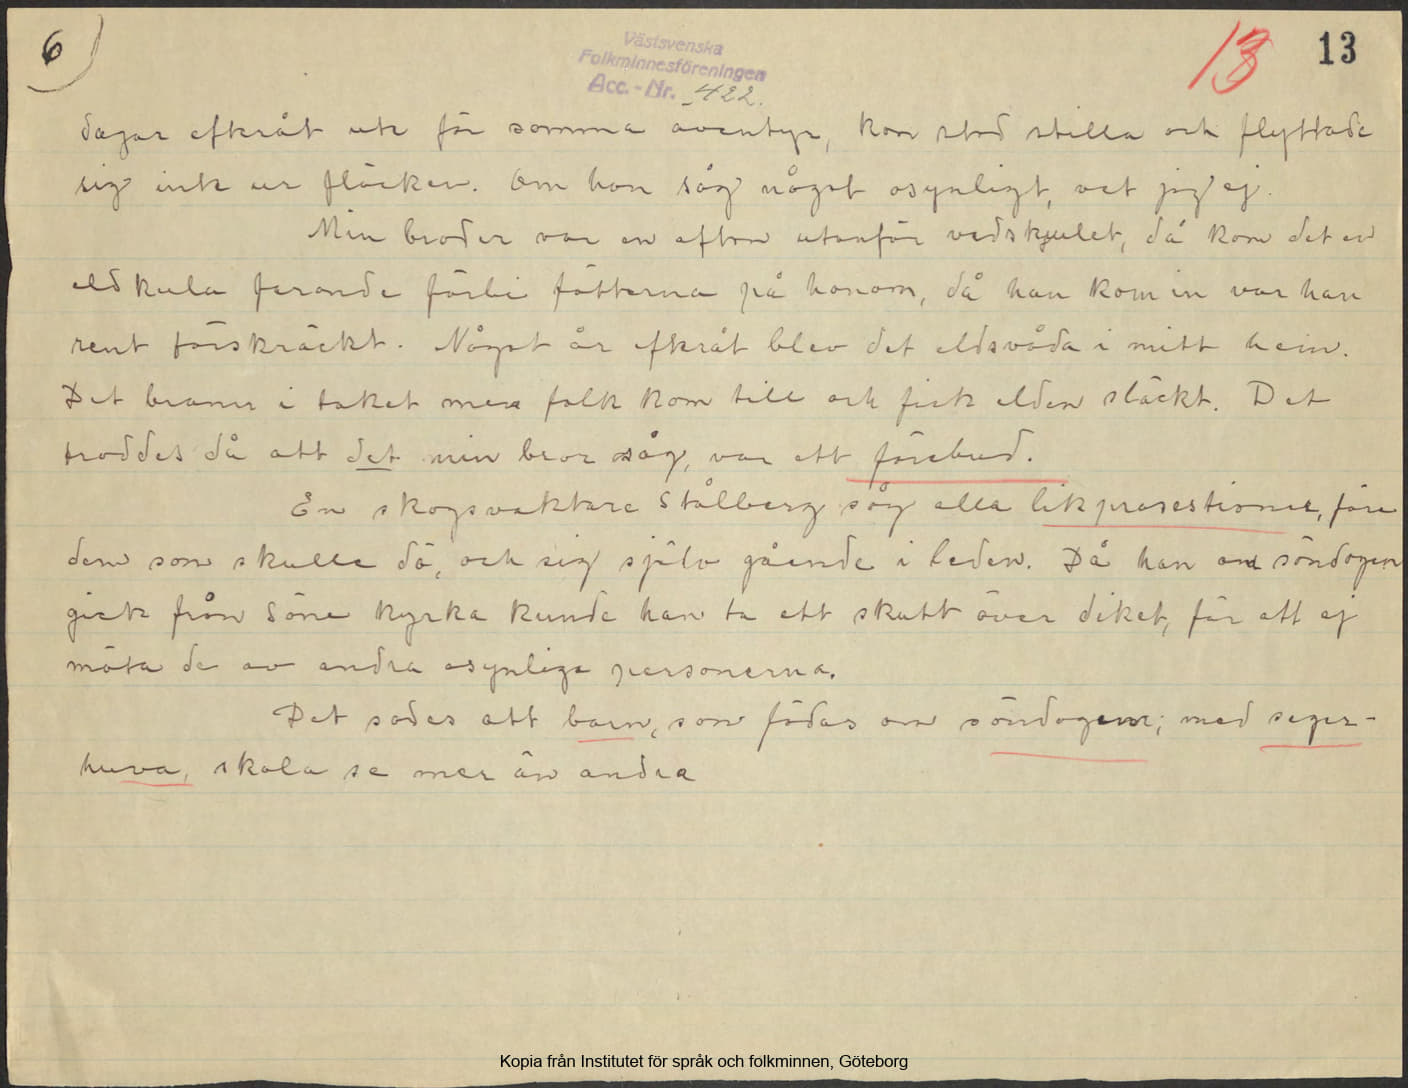 6)
Västsvenska
Folkminnesföreningen
Acc.-Nr. 422.
13
13
dagar efteråt ute för samma äventyr, kon stod stilla och flyttade
sig inte ur fläcken. Om hon såg något osynligt, vet jag ej.
Min broder var en afton utanför vedskjulet, då kom det en
eldkula farande förbi fötterna på honom, då han kom in var han
rent förskräckt. Något år efteråt blev det eldsvåda i mitt hem.
Det brann i taket men folk kom till och fick elden släckt. Det
troddes då att det min bror såg, var ett förebud.
En skogsvaktare Stålberg såg alla likprosestioner, före
dem som skulle dö, och sig själv gående i leden. Då han om söndagen
gick från Söne kyrka kunde han ta ett skutt över diket, för att ej
möta de av andra osynliga personerna.
Det sades att barn, som födas om söndagen, med seger-
huva, skola se mer än andra
Kopia från Institutet för språk och folkminnen, Göteborg